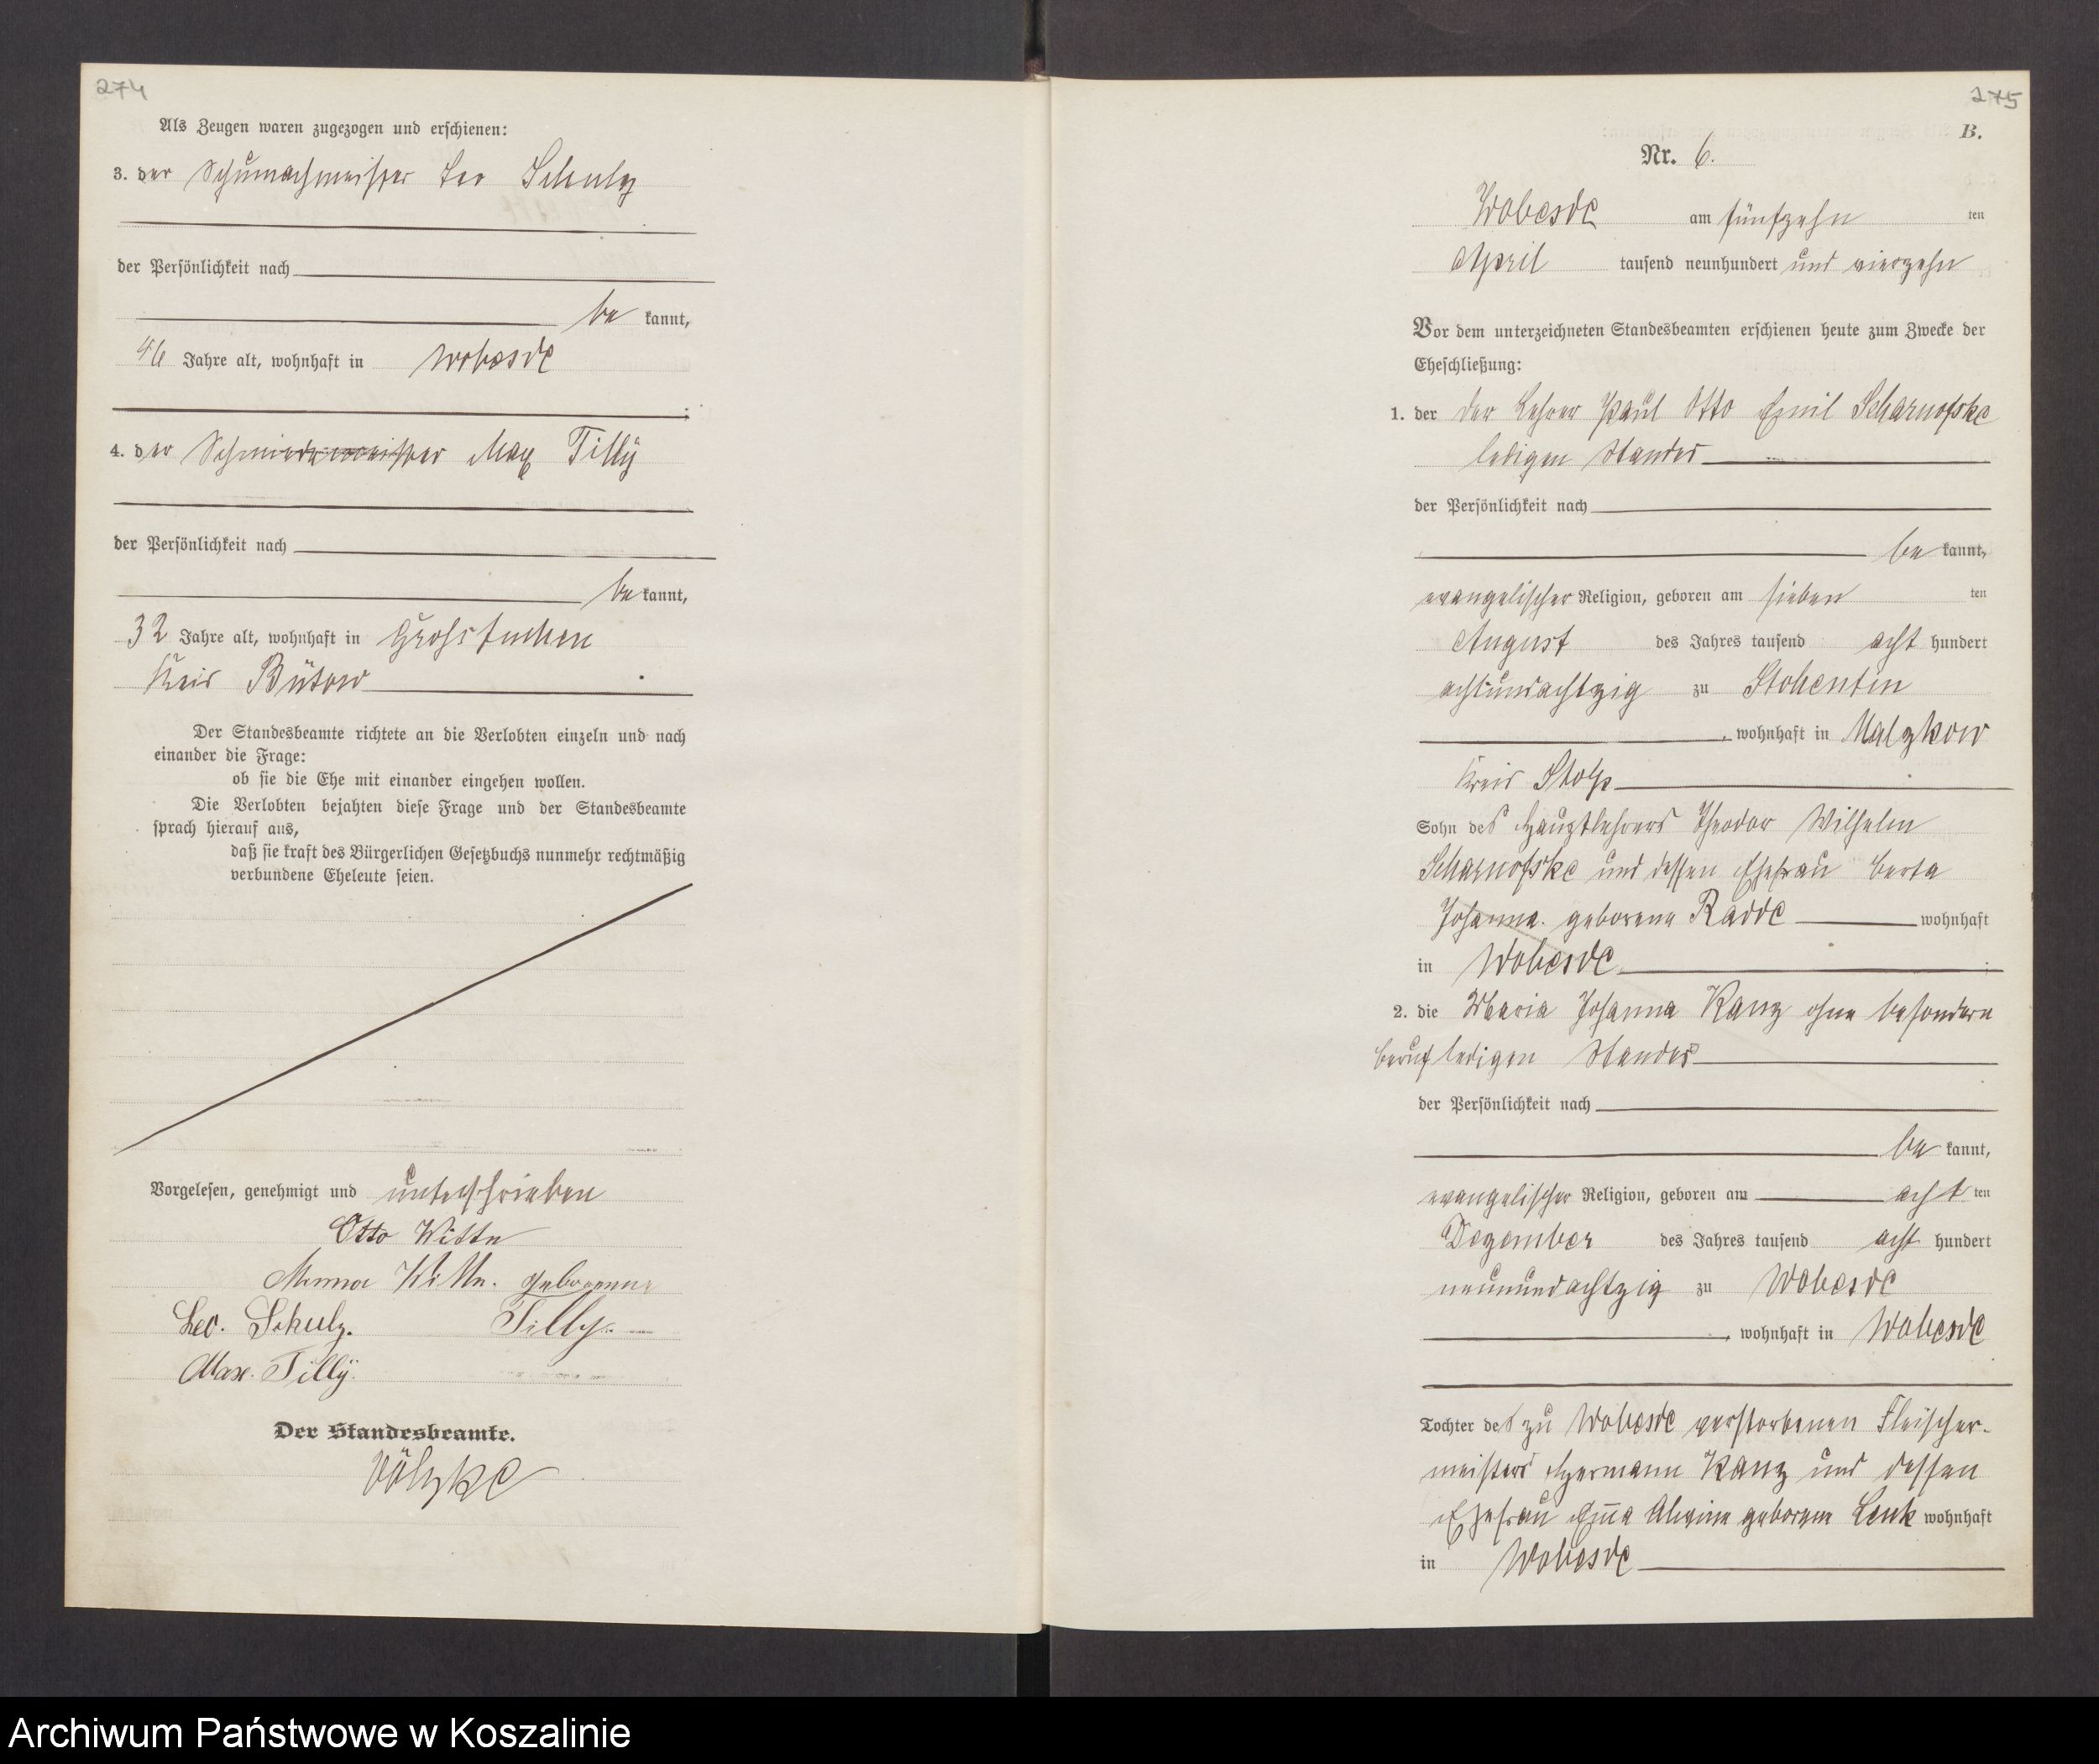 274
Als Zeugen waren zugezogen und erschienen:
3. der Schumachmeister Leo Schulz
der Persönlichkeit nach
be kannt,
46 Jahre alt, wohnhaft in Wobesde
;
4. der Schmiedemeister Max Tillÿ
der Persönlichkeit nach
be kannt,
32 Jahre alt, wohnhaft in Gross Tuchen
Kreis Bütow
Der Standesbeamte richtete an die Verlobten einzeln und nach
einander die Frage:
ob sie die Ehe mit einander eingehen wollen.
Die Verlobten bejahten diese Frage und der Standesbeamte
sprach hierauf aus,
daß sie kraft des Bürgerlichen Gesetzbuchs nunmehr rechtmäßig
verbundene Eheleute seien.
Vorgelesen, genehmigt und unterschrieben
Otto Witte
Minna Witte. geborene
Leo. Schulz. Tilly.
Max. Tillÿ.
Der Standesbeamte.
Völzke
275
B.
Nr. 6.
Wobesde am fünfzehn ten
April tausend neunhundert und vierzehn
Vor dem unterzeichneten Standesbeamten erschienen heute zum Zwecke der
Eheschließung:
1. der der Lehrer Paul Otto Emil Scharnofske
ledigen Standes
der Persönlichkeit nach
be kannt,
evangelischer Religion, geboren am sieben ten
August des Jahres tausend acht hundert
achtundachtzig zu Stohentin
, wohnhaft in Malzkow
Kreis Stolp
Sohn des Hauptlehrers Theodor Wilhelm
Scharnofske und dessen Ehefrau Berta
Johanna. geborene Radde wohnhaft
in Wobesde ;
2. die Maria Johanna Kanz ohne besondern
Beruf ledigen Standes
der Persönlichkeit nach
be kannt,
evangelischer Religion, geboren am acht ten
Dezember des Jahres tausend acht hundert
neunundachtzig zu Wobesde
, wohnhaft in Wobesde
Tochter des zu Wobesde verstorbenen Fleischer-
meisters Hermann Kanz und dessen
Ehefrau Em̅a Alwine geborene Lenk wohnhaft
in Wobesde
Archiwum Państwowe w Koszalinie